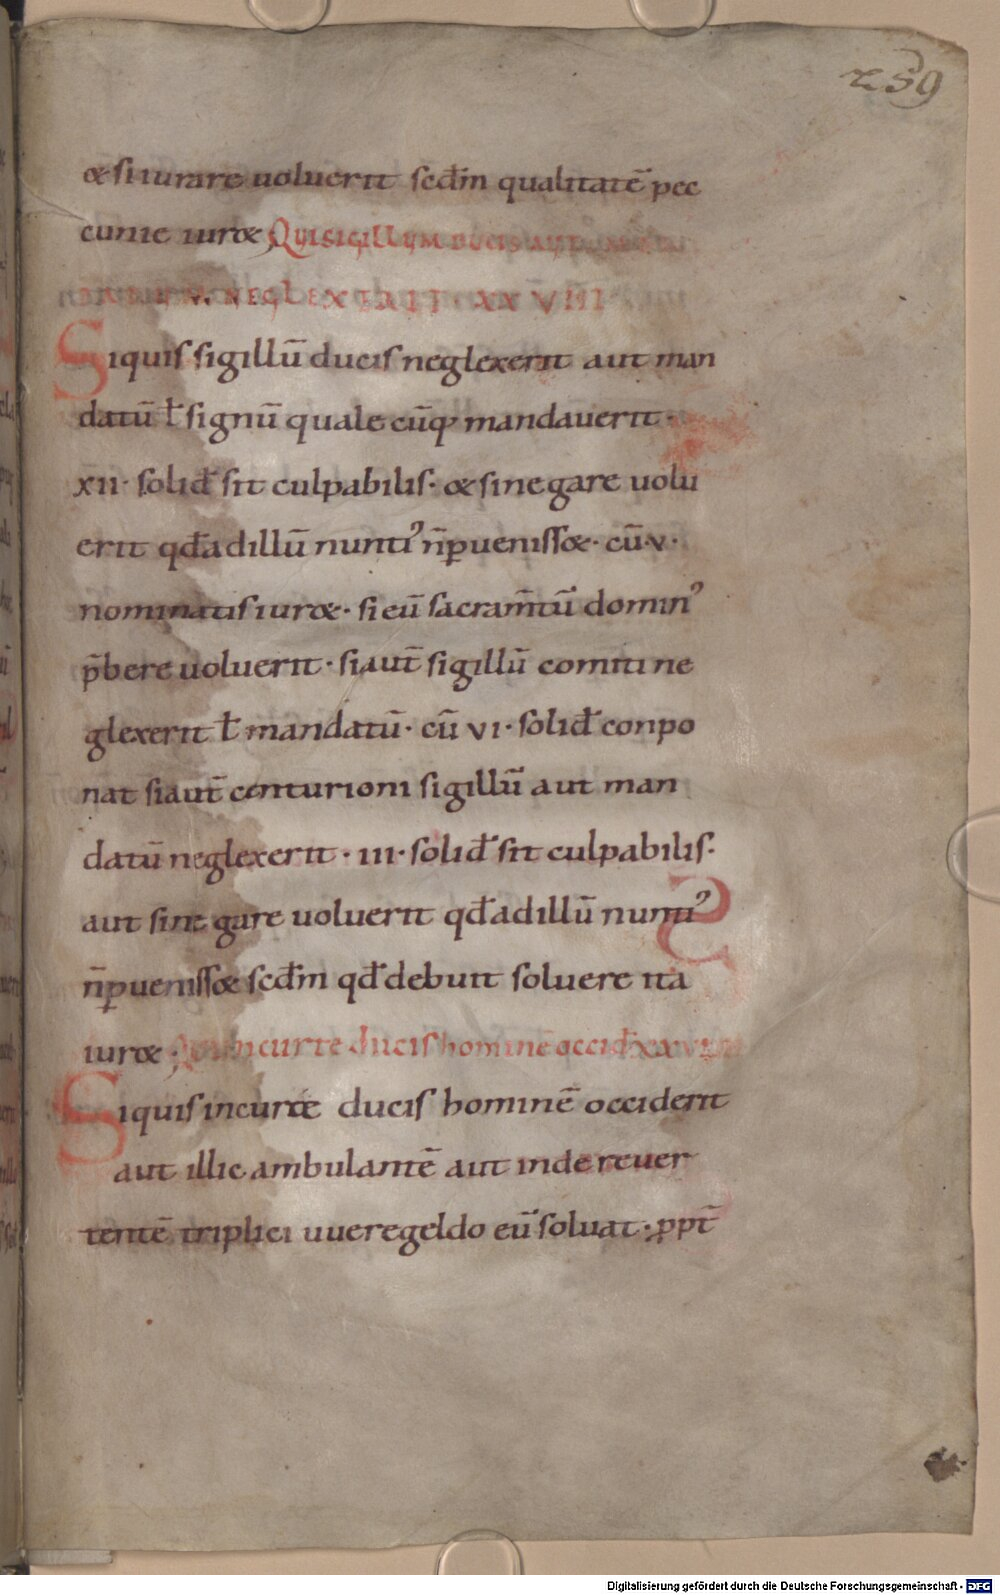 259
& si iurare uoluerit secđm qualitatē pec
cunie iur& QUI SIGILLUM DUCIS AUT
NEGLEXERIT · XXVIII
Siquis sigillū ducis neglexerit aut man
datū ł signū quale cūq; mandauerit ·
xii · soliđ sit culpabilis · & sinegare uolu
erit qđ ad illū nunti᾿ n̄ pueniss& · cū · v ·
nominatis iur& · si eū sacram̄tū domin᾿
p̄bere uoluerit · si aut̄ sigillū comiti ne
glexerit ł mandatū · cū vi · soliđ conpo
nat si aut̄ centurioni sigillū aut man
datū neglexerit · iii · soliđ sit culpabilis ·
aut sine gare uoluerit qđ ad illū nunti᾿
n̄ pueniss& secđm qđ debuit soluere ita
iur& · Qui in curte ducis hominē occiđ xxviiii
Siquis in curte ducis hominē occiderit
aut illic ambulantē aut inde reuer
tentē triplici uueregeldo eū soluat · ppt̄
Digitalisierung gefördert durch die Deutsche Forschungsgemeinschaft - DFG